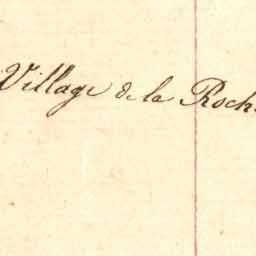 Village de la Roch